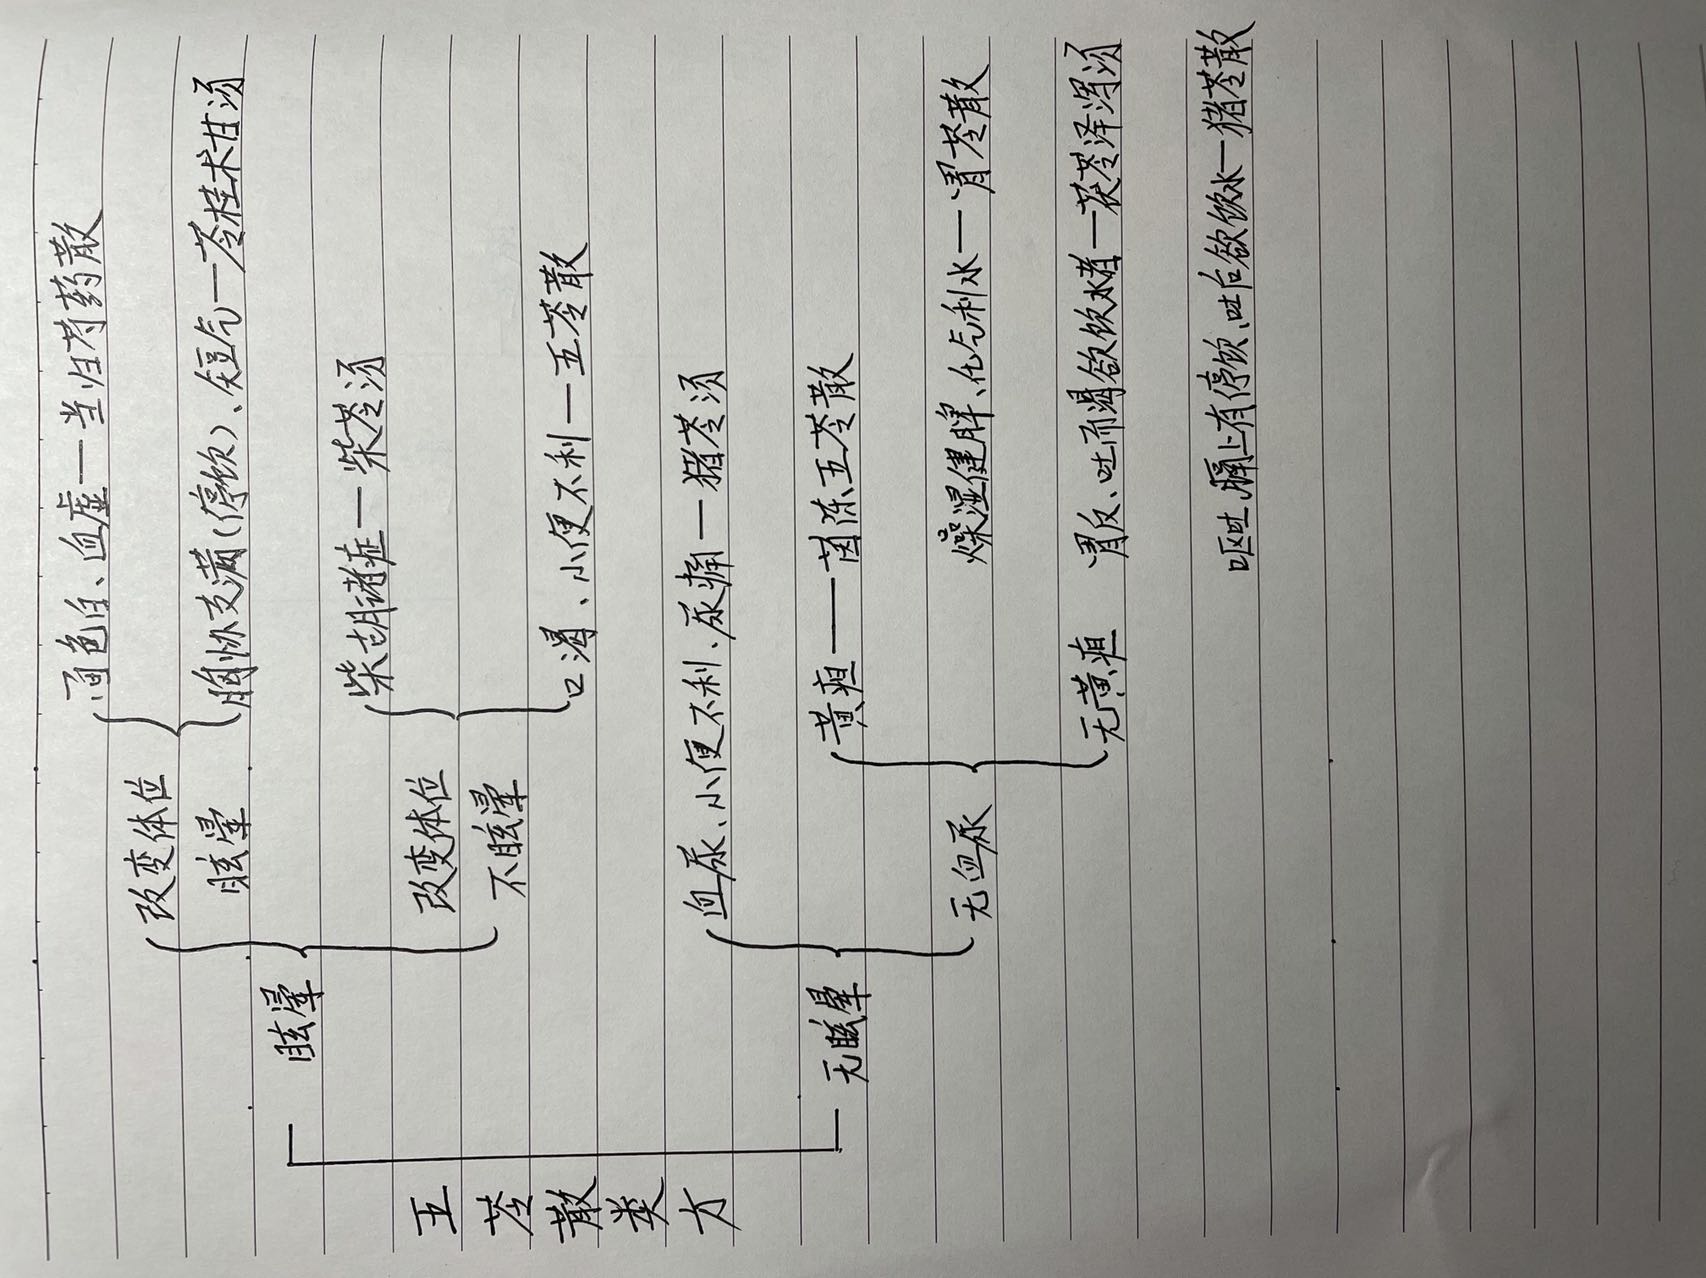 五苓散类方
眩晕
改变体位
眩晕
面色白、血虚——当归芍药散
胸胁支满(停饮)、短气——苓桂术甘汤
改变体位
不眩晕
柴胡诸症——柴苓汤
口渴、小便不利——五苓散
无眩晕
血尿、小便不利、尿痛——猪苓汤
无血尿
黄疸——茵陈五苓散
无黄疸
燥湿健脾、化气利水——胃苓散
胃反、吐而渴欲饮水者——茯苓泽泻汤
呕吐、膈上有停饮、吐后欲饮水——猪苓散